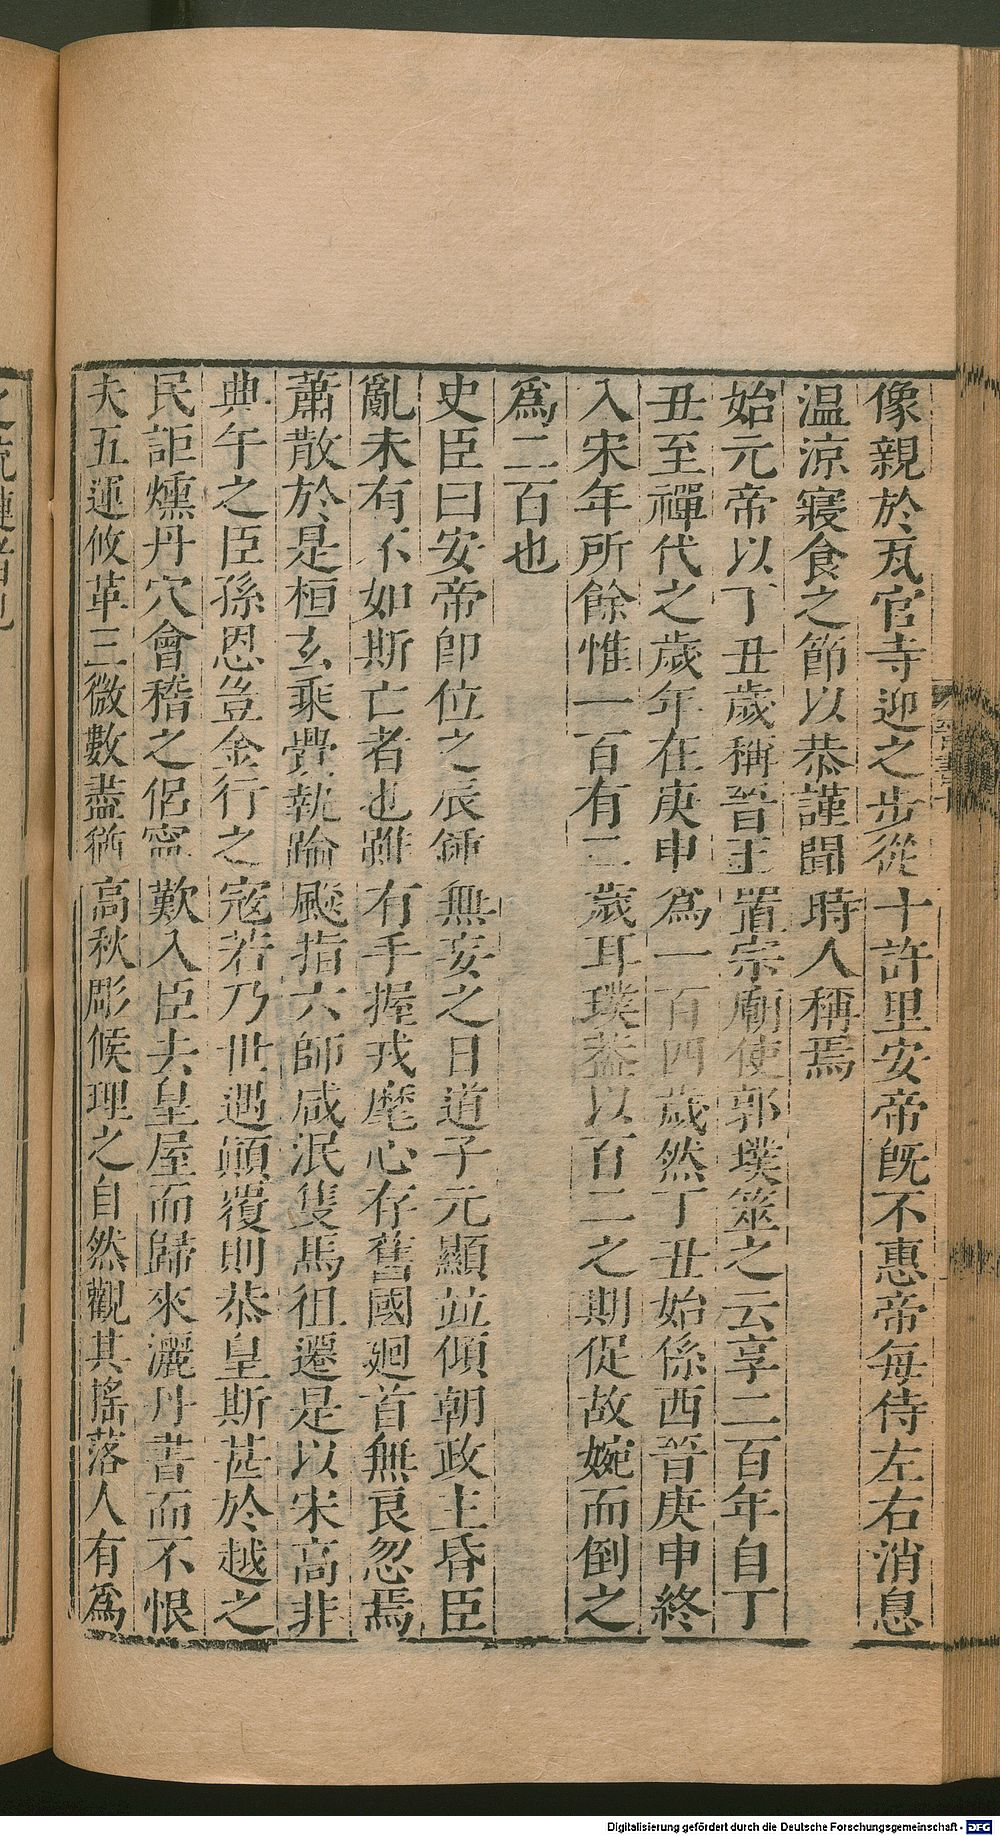 像親於瓦官寺迎之步從十許里安帝旣不惠帝每侍左右消息
温涼寢食之節以恭謹聞時人稱焉
始元帝以丁丑歲稱晉王置宗廟使郭璞筮之云享二百年自丁
丑至禪代之歲年在庚申爲一百四歲然丁丑始係西晉庚申終
入宋年所餘惟一百有二歲耳璞葢以百二之期促故婉而倒之
爲二百也
史臣曰安帝卽位之辰鍾無妄之日道子元顯竝傾朝政主昏臣
亂未有不如斯亡者也雖有手握戎麾心存舊國廻首無良忽焉
蕭散於是桓玄乘舋執踰飈指六師咸泯隻馬徂遷是以宋高非
典午之臣孫恩豈金行之寇若乃世遇顚覆則恭皇斯甚於越之
民詎燻丹穴會稽之侶寧歎入臣去皇屋而歸來灑丹書而不恨
夫五運攸革三微數盡猶高秋彫候理之自然觀其搖落人有爲
晉書十
Digitalisierung gefördert durch die Deutsche Forschungsgemeinschaft - DFG